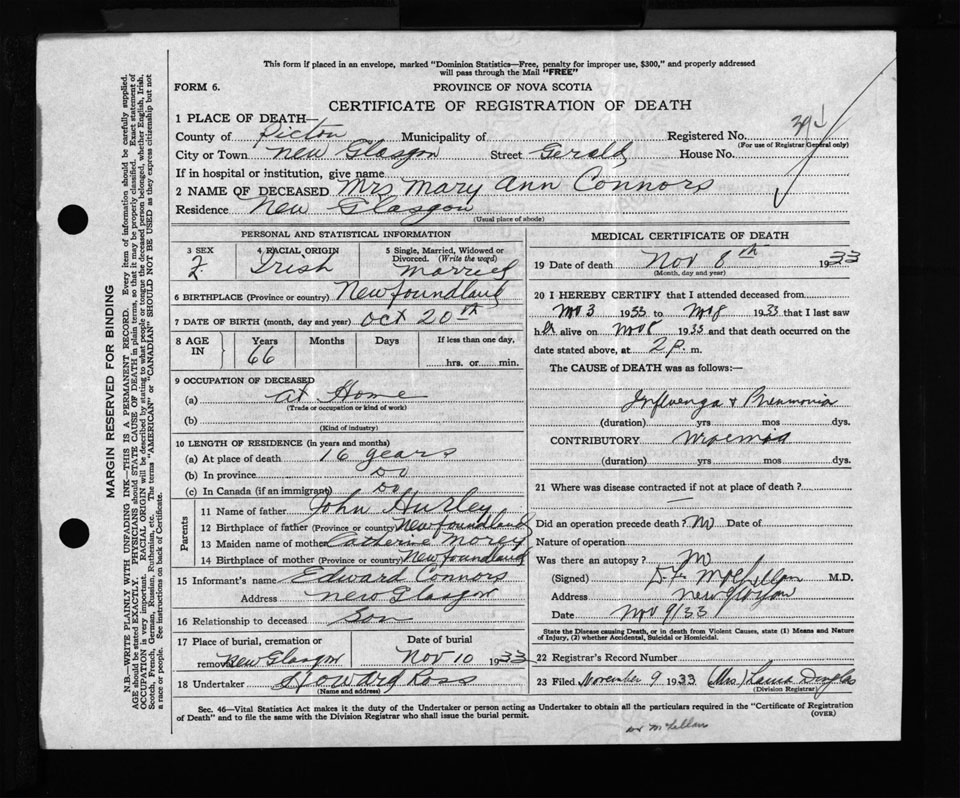 This form if placed in an envelope, marked "Dominion Statistics—Free, penalty for improper use, $300," and properly addressed
will pass through the Mail "FREE"
FORM 6.
PROVINCE OF NOVA SCOTIA
CERTIFICATE OF REGISTRATION OF DEATH
1 PLACE OF DEATH—
County of Pictou Municipality of Registered No. 39
(For use of Registrar General only)
City or Town New Glasgow Street Gerald House No.
If in hospital or institution, give name
2 NAME OF DECEASED Mrs Mary Ann Connors
Residence New Glasgow
(Usual place of abode)
PERSONAL AND STATISTICAL INFORMATION
3 SEX
4 RACIAL ORIGIN Irish
5 Single, Married, Widowed or Divorced. (Write the word) Married
6 BIRTHPLACE (Province or country) Newfoundland
7 DATE OF BIRTH (month, day and year) Oct 20th
8 AGE IN Years 66 Months Days If less than one day, hrs. or min.
9 OCCUPATION OF DECEASED
(a) at Home
(Trade or occupation or kind of work)
(b)
(Kind of industry)
10 LENGTH OF RESIDENCE (in years and months)
(a) At place of death 16 years
(b) In province Do
(c) In Canada (if an immigrant) Do
Parents
11 Name of father John Hurley
12 Birthplace of father (Province or country) Newfoundland
13 Maiden name of mother Catherine
14 Birthplace of mother (Province or country) Newfoundland
15 Informant's name Edward Connors
Address New Glasgow
16 Relationship to deceased Son
17 Place of burial, cremation or removal New Glasgow Date of burial Nov 10 1933
18 Undertaker Howard Ross
(Name and address)
MEDICAL CERTIFICATE OF DEATH
19 Date of death Nov 8th 1933
(Month, day and year)
20 I HEREBY CERTIFY that I attended deceased from
Nov 3 1933 to Nov 8 1933 that I last saw
her alive on Nov 8 1933 and that death occurred on the
date stated above, at 2 p. m.
The CAUSE of DEATH was as follows:—
Influenza + Pneumonia
(duration) yrs mos dys.
CONTRIBUTORY Uraemia
(duration) yrs mos dys.
21 Where was disease contracted if not at place of death?
—
Did an operation precede death? No Date of
Nature of operation
Was there an autopsy? No
(Signed) McLellan M.D.
Address New Glasgow
Date Nov 9/33
State the Disease causing Death, or in death from Violent Causes, state (1) Means and Nature
of Injury, (2) whether Accidental, Suicidal or Homicidal.
22 Registrar's Record Number
23 Filed November 9 1933 (Mrs) Laura Douglas
(Division Registrar)
Sec. 46—Vital Statistics Act makes it the duty of the Undertaker or person acting as Undertaker to obtain all the particulars required in the "Certificate of Registration
of Death" and to file the same with the Division Registrar who shall issue the burial permit.
(OVER)
Dr McLellan
MARGIN RESERVED FOR BINDING
N.B.—WRITE PLAINLY WITH UNFADING INK—THIS IS A PERMANENT RECORD. Every item of information should be carefully supplied.
AGE should be stated EXACTLY. PHYSICIANS should STATE CAUSE OF DEATH in plain terms, so that it may be properly classified. Exact statement of
OCCUPATION is very important. RACIAL ORIGIN will be described by stating to what people or tongue the deceased person belonged, whether English, Irish,
Scotch, French, German, Russian, Ruthenian, etc. The terms "AMERICAN" or "CANADIAN" SHOULD NOT BE USED as they express citizenship but not
a race or people. See instructions on back of Certificate.